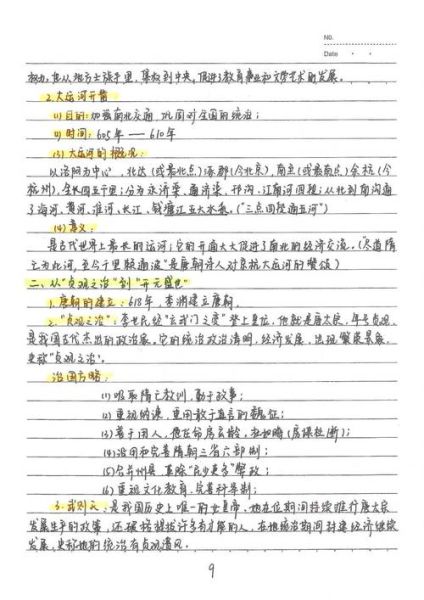 No.
Date
努力,也从地方士族手里,集权到中央,促进了教育事业和文学艺术的发展。
2.大运河开凿
(1)目的:加强南北交通,巩固对全国的统治;
(2)时间:605年——610年
(3)大运河的概况:
以洛阳为中心,北达(或最北点)涿郡(今北京),南至(或最南点)余杭(今
杭州),全长四五千里;分为永济渠、通济渠、邗沟、江南河四段;从北到南沟通
了海河、黄河、淮河、长江、钱塘江五大水系。("三点四段通五河")
(4)意义:
是古代世界上最长的运河;它的开通大大促进了南北的经济交流。("尽道隋
亡为此河,至今千里赖通波"是唐朝诗人对京杭大运河的赞颂)
二、从"贞观之治"到"开元盛世"
1.唐朝的建立:618年,李渊建立唐朝。
2."贞观之治":李世民经"玄武门之变"登上皇位,他就是唐太宗,年号贞观,
是我国古代杰出的政治家。它的统治政治清明,经济发展,出现繁荣景象,
史称"贞观之治"。
治国方略:
(1)吸取隋亡教训,勤于政事;
(2)重视纳谏,重用敢于直言的魏征;
(3)善于用人,他任命房玄龄、杜如晦(房谋杜断);
(4)沿用和完善隋朝三省六部制;
(5)合并州县,革除"民少吏多"弊政;
(6)重视文化教育,完善科举制;
3.武则天:是我国历史上唯一的女皇帝,她在位期间持续推行唐太宗
发展生产的政策,还破格提拔许多有才能的人,在她统治期间封建经济继续
发展,史称她的统治有贞观遗风。
9